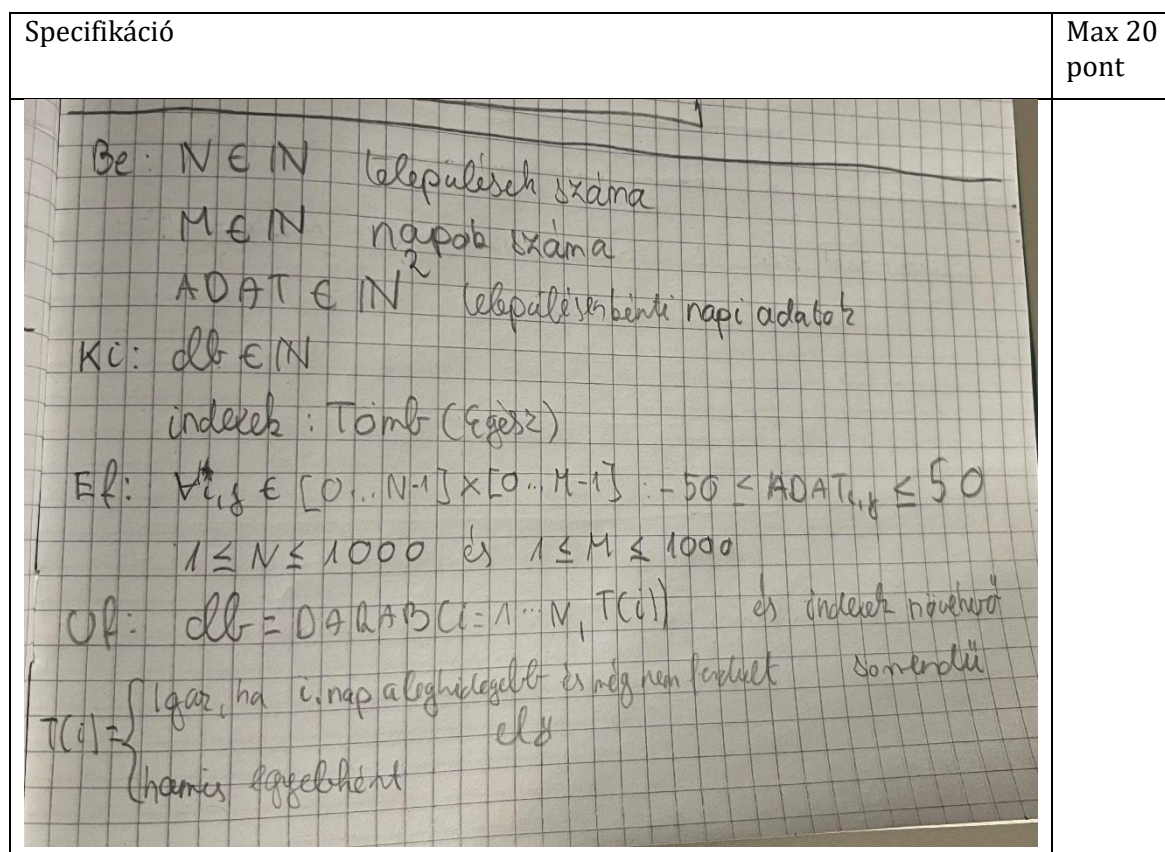 Specifikáció
Max 20
pont
Be: N ∈ ℕ települések száma
M ∈ ℕ napok száma
ADAT ∈ ℕ² településenkénti napi adatok
Ki: db ∈ ℕ
indexek : Tömb (Egész)
Ef: ∀i,j ∈ [0..N-1]×[0..M-1] : -50 ≤ ADATi,j ≤ 50
1 ≤ N ≤ 1000 és 1 ≤ M ≤ 1000
Uf: db = DARAB(i=1..N, T(i)) és indexek növekvő
T(i)={ Igaz, ha i. nap a leghidegebb és még nem fordult sorrendű
elő
hamis egyébként